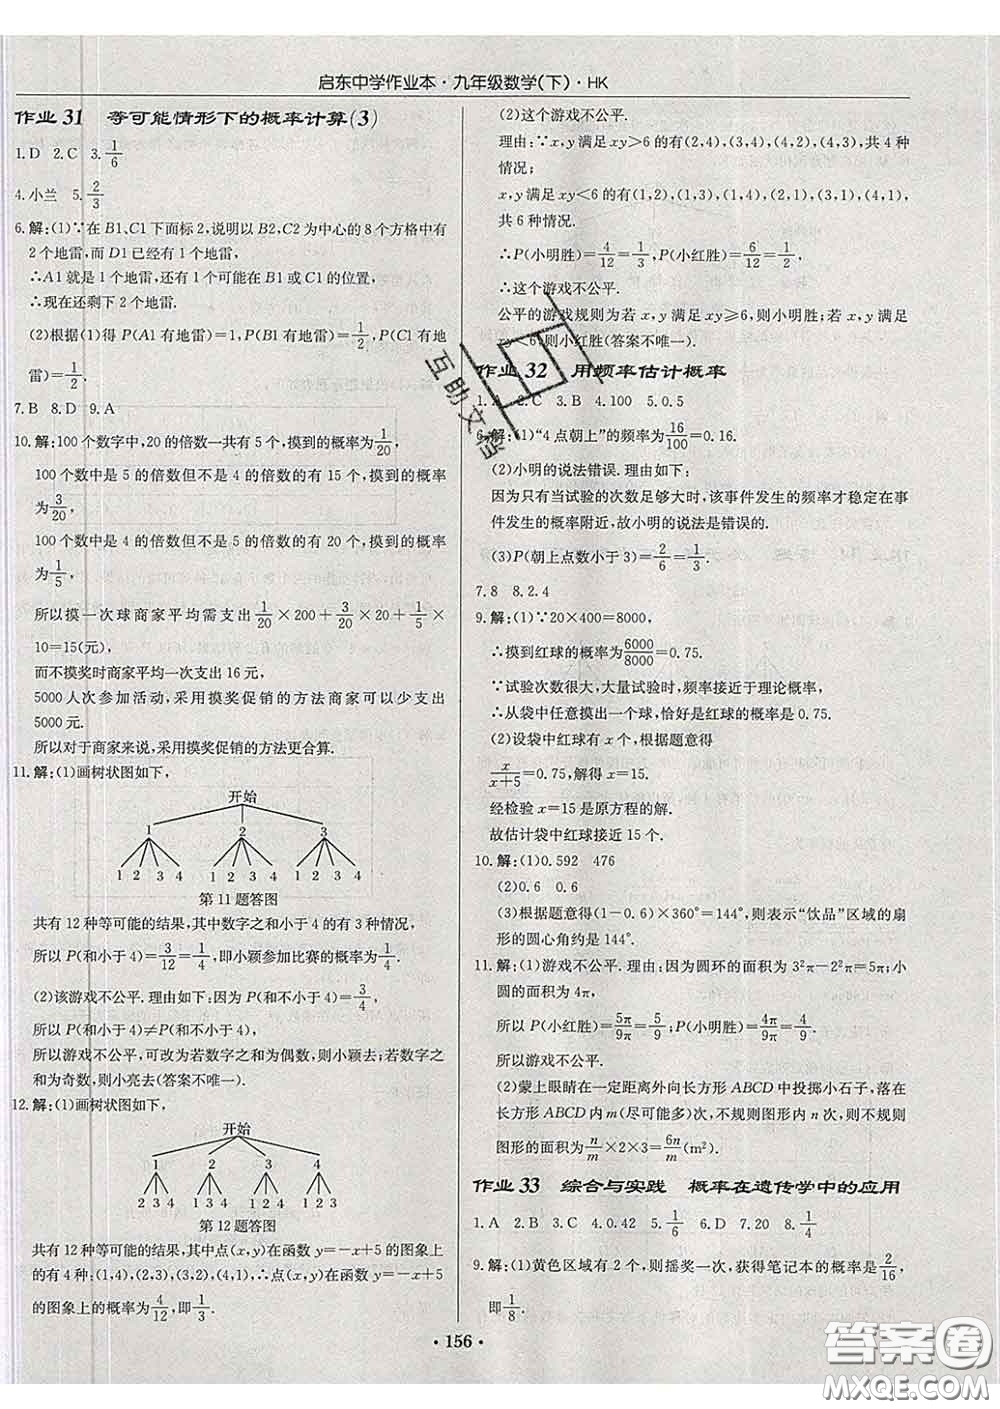 启东中学作业本·九年级数学(下)·HK
作业 31　等可能情形下的概率计算(3)
1.D 2.C 3.1/6
4.小兰 5.2/3
6.解:(1)∵在 B1、C1 下面标 2,说明以 B2、C2 为中心的 8 个方格中有
2 个地雷,而 D1 已经有 1 个地雷,
∴A1 就是 1 个地雷,还有 1 个可能在 B1 或 C1 的位置,
∴现在还剩下 2 个地雷.
(2)根据(1)得 P(A1 有地雷)=1,P(B1 有地雷)=1/2,P(C1 有地
雷)=1/2.
7.B 8.D 9.A
10.解:100 个数字中,20 的倍数一共有 5 个,摸到的概率为1/20,
100 个数中是 5 的倍数但不是 4 的倍数的有 15 个,摸到的概率
为3/20,
100 个数中是 4 的倍数但不是 5 的倍数的有 20 个,摸到的概率为
1/5,
所以摸一次球商家平均需支出1/20×200+3/20×20+1/5×
10=15(元),
而不摸奖时商家平均一次支出 16 元.
5000 人次参加活动,采用摸奖促销的方法商家可以少支出
5000 元.
所以对于商家来说,采用摸奖促销的方法更合算.
11.解:(1)画树状图如下,
开始
1 2 3
1 2 3 4 1 2 3 4 1 2 3 4
第 11 题答图
共有 12 种等可能的结果,其中数字之和小于 4 的有 3 种情况,
所以 P(和小于 4)=3/12=1/4,即小颖参加比赛的概率为1/4.
(2)该游戏不公平.理由如下:因为 P(和不小于 4)=3/4,
所以 P(和小于 4)≠P(和不小于 4),
所以游戏不公平,可改为若数字之和为偶数,则小颖去;若数字之
和为奇数,则小亮去(答案不唯一).
12.解:(1)画树状图如下,
开始
1 2 3 4
2 3 4 1 3 4 1 2 4 1 2 3
第 12 题答图
共有 12 种等可能的结果,其中点(x,y)在函数 y=-x+5 的图象上
的有 4 种:(1,4),(2,3),(3,2),(4,1),∴点(x,y)在函数 y=-x+5
的图象上的概率为4/12,即1/3.
(2)这个游戏不公平.
理由:∵x,y 满足 xy>6 的有(2,4),(3,4),(4,2),(4,3),共 4 种
情况;
x,y 满足 xy<6 的有(1,2),(1,3),(1,4),(2,1),(3,1),(4,1),
共 6 种情况.
∴P(小明胜)=4/12=1/3,P(小红胜)=6/12=1/2,
∴这个游戏不公平.
公平的游戏规则为若 x,y 满足 xy≥6,则小明胜;若 x,y 满足
xy<6,则小红胜(答案不唯一).
作业 32　用频率估计概率
1.A 2.C 3.B 4.100 5.0.5
6.解:(1)“4 点朝上”的频率为16/100=0.16.
(2)小明的说法错误.理由如下:
因为只有当试验的次数足够大时,该事件发生的频率才稳定在事
件发生的概率附近,故小明的说法是错误的.
(3)P(朝上点数小于 3)=2/6=1/3.
7.8 8.2.4
9.解:(1)∵20×400=8000,
∴摸到红球的概率为6000/8000=0.75.
∵试验次数很大,大量试验时,频率接近于理论概率,
∴从袋中任意摸出一个球,恰好是红球的概率是 0.75.
(2)设袋中红球有 x 个,根据题意得
x/(x+5)=0.75,解得 x=15.
经检验 x=15 是原方程的解.
故估计袋中红球接近 15 个.
10.解:(1)0.592 476
(2)0.6 0.6
(3)根据题意得(1-0.6)×360°=144°,则表示“饮品”区域的扇
形的圆心角约是 144°.
11.解:(1)游戏不公平.理由:因为圆环的面积为 3²π-2²π=5π;小
圆的面积为 4π,
所以 P(小红胜)=5π/9π=5/9;P(小明胜)=4π/9π=4/9,
所以游戏不公平.
(2)蒙上眼睛在一定距离外向长方形 ABCD 中投掷小石子,落在
长方形 ABCD 内 m(尽可能多)次,不规则图形内 n 次,则不规则
图形的面积为n/m×2×3=6n/m(m²).
作业 33　综合与实践　概率在遗传学中的应用
1.A 2.B 3.C 4.0.42 5.1/6 6.D 7.20 8.1/4
9.解:(1)黄色区域有 2 个,则摇奖一次,获得笔记本的概率是2/16,
即1/8.
·156·
互助文档
答案圈
MXQE.COM